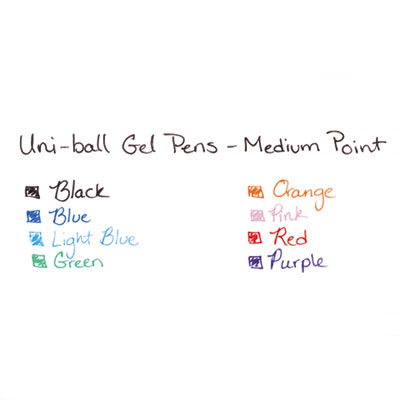 Uni-ball Gel Pens - Medium Point
Black
Blue
Light Blue
Green
Orange
Pink
Red
Purple